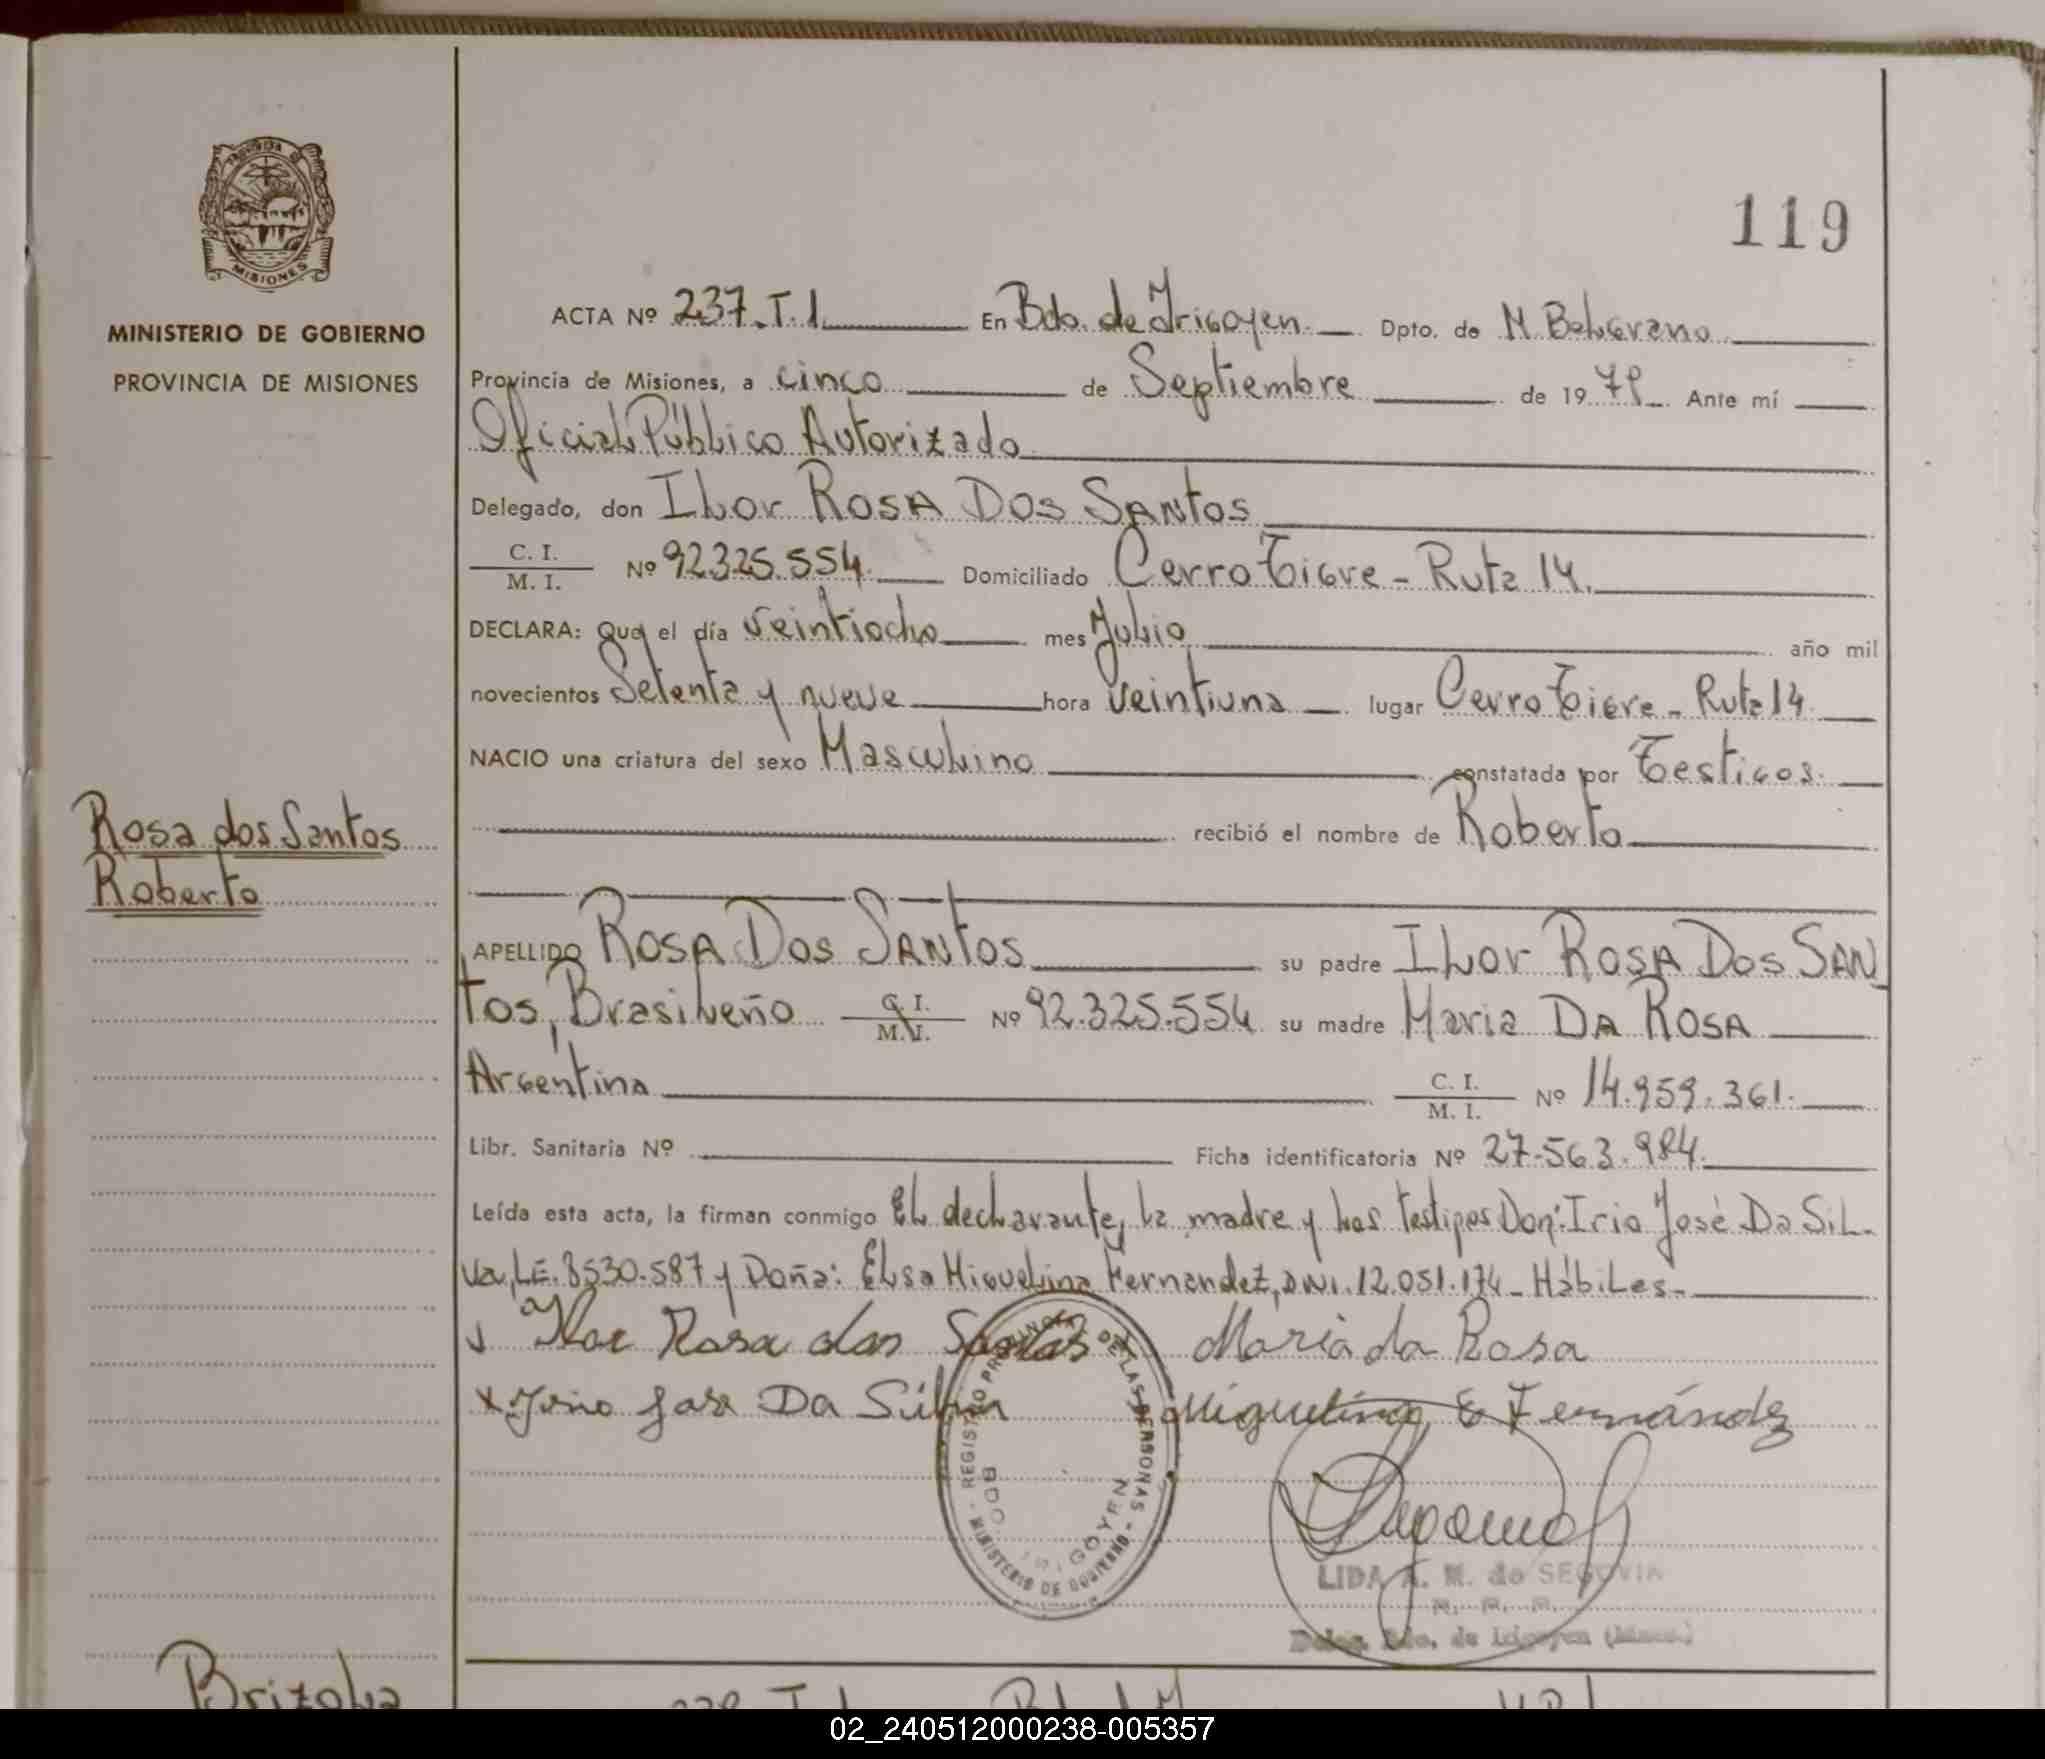 119
PROVINCIA D
MISIONES
MINISTERIO DE GOBIERNO
PROVINCIA DE MISIONES
ACTA Nº 237.T.1. En Bdo. de Irigoyen. Dpto. de M. Belgrano
Provincia de Misiones, a cinco de Septiembre de 1979 Ante mí
Oficial Público Autorizado
Delegado, don Ilor ROSA DOS SANTOS
C. I. / M. I. Nº 92.325.554. Domiciliado Cerro Tigre - Ruta 14.
DECLARA: Que el día veintiocho mes Julio año mil
novecientos Setenta y nueve hora veintiuna lugar Cerro Tigre - Ruta 14
NACIO una criatura del sexo Masculino constatada por Testigos.
recibió el nombre de Roberto
Rosa dos Santos
Roberto
APELLIDO ROSA DOS SANTOS su padre Ilor ROSA DOS SAN
TOS, Brasileño C. I. / M. I. Nº 92.325.554 su madre Maria DA ROSA
Argentina C. I. / M. I. Nº 14.959.361.
Libr. Sanitaria Nº Ficha identificatoria Nº 27.563.984.
Leída esta acta, la firman conmigo El declarante, la madre y los testigos Don: Irio José Da Sil-
va, L.E. 8530.587 y Doña: Elsa Miguelina Fernandez, DNI. 12.051.174 - Hábiles -
Ilor Rosa dos Santos Maria da Rosa
x Irio José Da Silva Miguelina E Fernández
REGISTRO PROVINCIAL DE LAS PERSONAS - MINISTERIO DE GOBIERNO -
BDO. IRIGOYEN
LIDA A. M. de SEGOVIA
Deleg. Bdo. de Irigoyen (Mnes.)
Brizola
238 T.
02_240512000238-005357